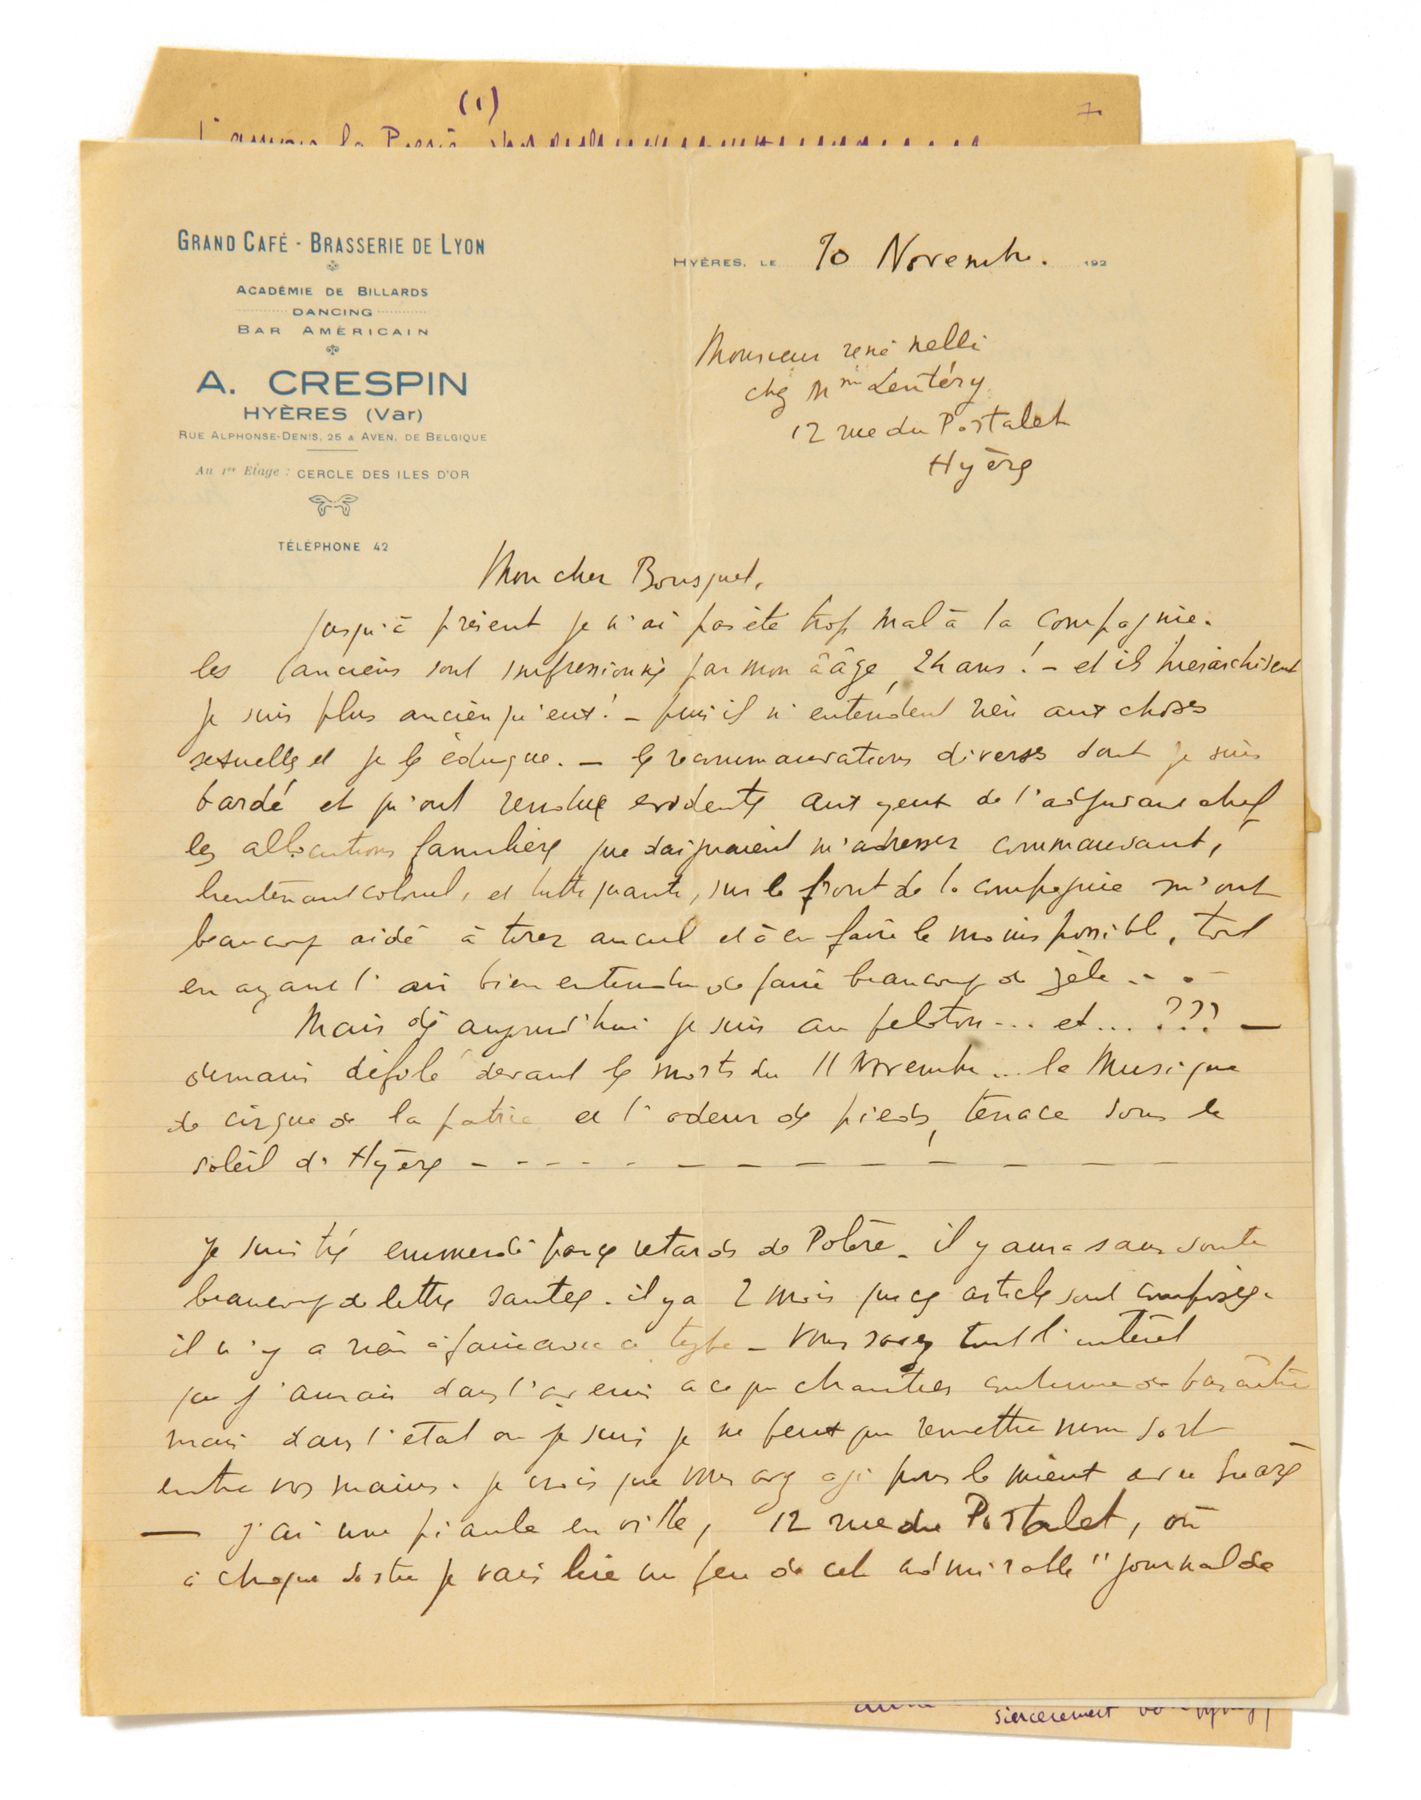 (1)
7
GRAND CAFÉ - BRASSERIE DE LYON
ACADÉMIE DE BILLARDS
DANCING
BAR AMÉRICAIN
A. CRESPIN
HYÈRES (Var)
RUE ALPHONSE-DENIS, 25 & AVEN. DE BELGIQUE
Au 1er Etage : CERCLE DES ILES D'OR
TÉLÉPHONE 42
HYÈRES, LE 10 Novembre. 192
Monsieur rené nelli
chez Mme
12 rue du Portalet
Hyères
Mon cher Bousquet,
jusqu'à présent je n'ai pas été trop mal à la compagnie.
les anciens sont impressionnés par mon ââge, 24 ans ! – et ils hierarchisent
je suis plus ancien qu'eux ! – puis il n'entendent rien aux choses
sexuelles et je les éduque. – les recommandations diverses dont je suis
bardé et qu'ont rendues evidentes aux yeux de l'adjudant chef
les allocutions familières que daignaient m'adresser commandant,
lieutenant colonel, et tutti quanti, sur le front de la compagnie m'ont
beaucoup aidé à tirer au cul et à en faire le moins possible, tout
en ayant l'air bien entendu de faire beaucoup de zèle - - -
Mais dès aujourd'hui je suis au peloton ... et ... ??? —
demain défilé devant les morts du 11 Novembre ... la Musique
de cirque de la patrie et l'odeur de pieds, tenace sous le
soleil d' Hyères - - - - - - - - - - - - -
je suis très emmerdé par ces retards de . il y aura sans doute
beaucoup de lettres sautées. il y a 2 mois que ces articles sont composés.
il n'y a rien à faire avec ce type – Vous savez tout l'intérêt
que j'aurais dans l'avenir à ce que chantiers continue de paraître
mais dans l'état où je suis je ne peux que remettre mon sort
entre vos mains. je crois que vous avez agi pour le mieux avec
— j'ai une piaule en ville, 12 rue du Portalet, où
à chaque sortie je vais lire un peu de cet admirable "journal de
sincerement